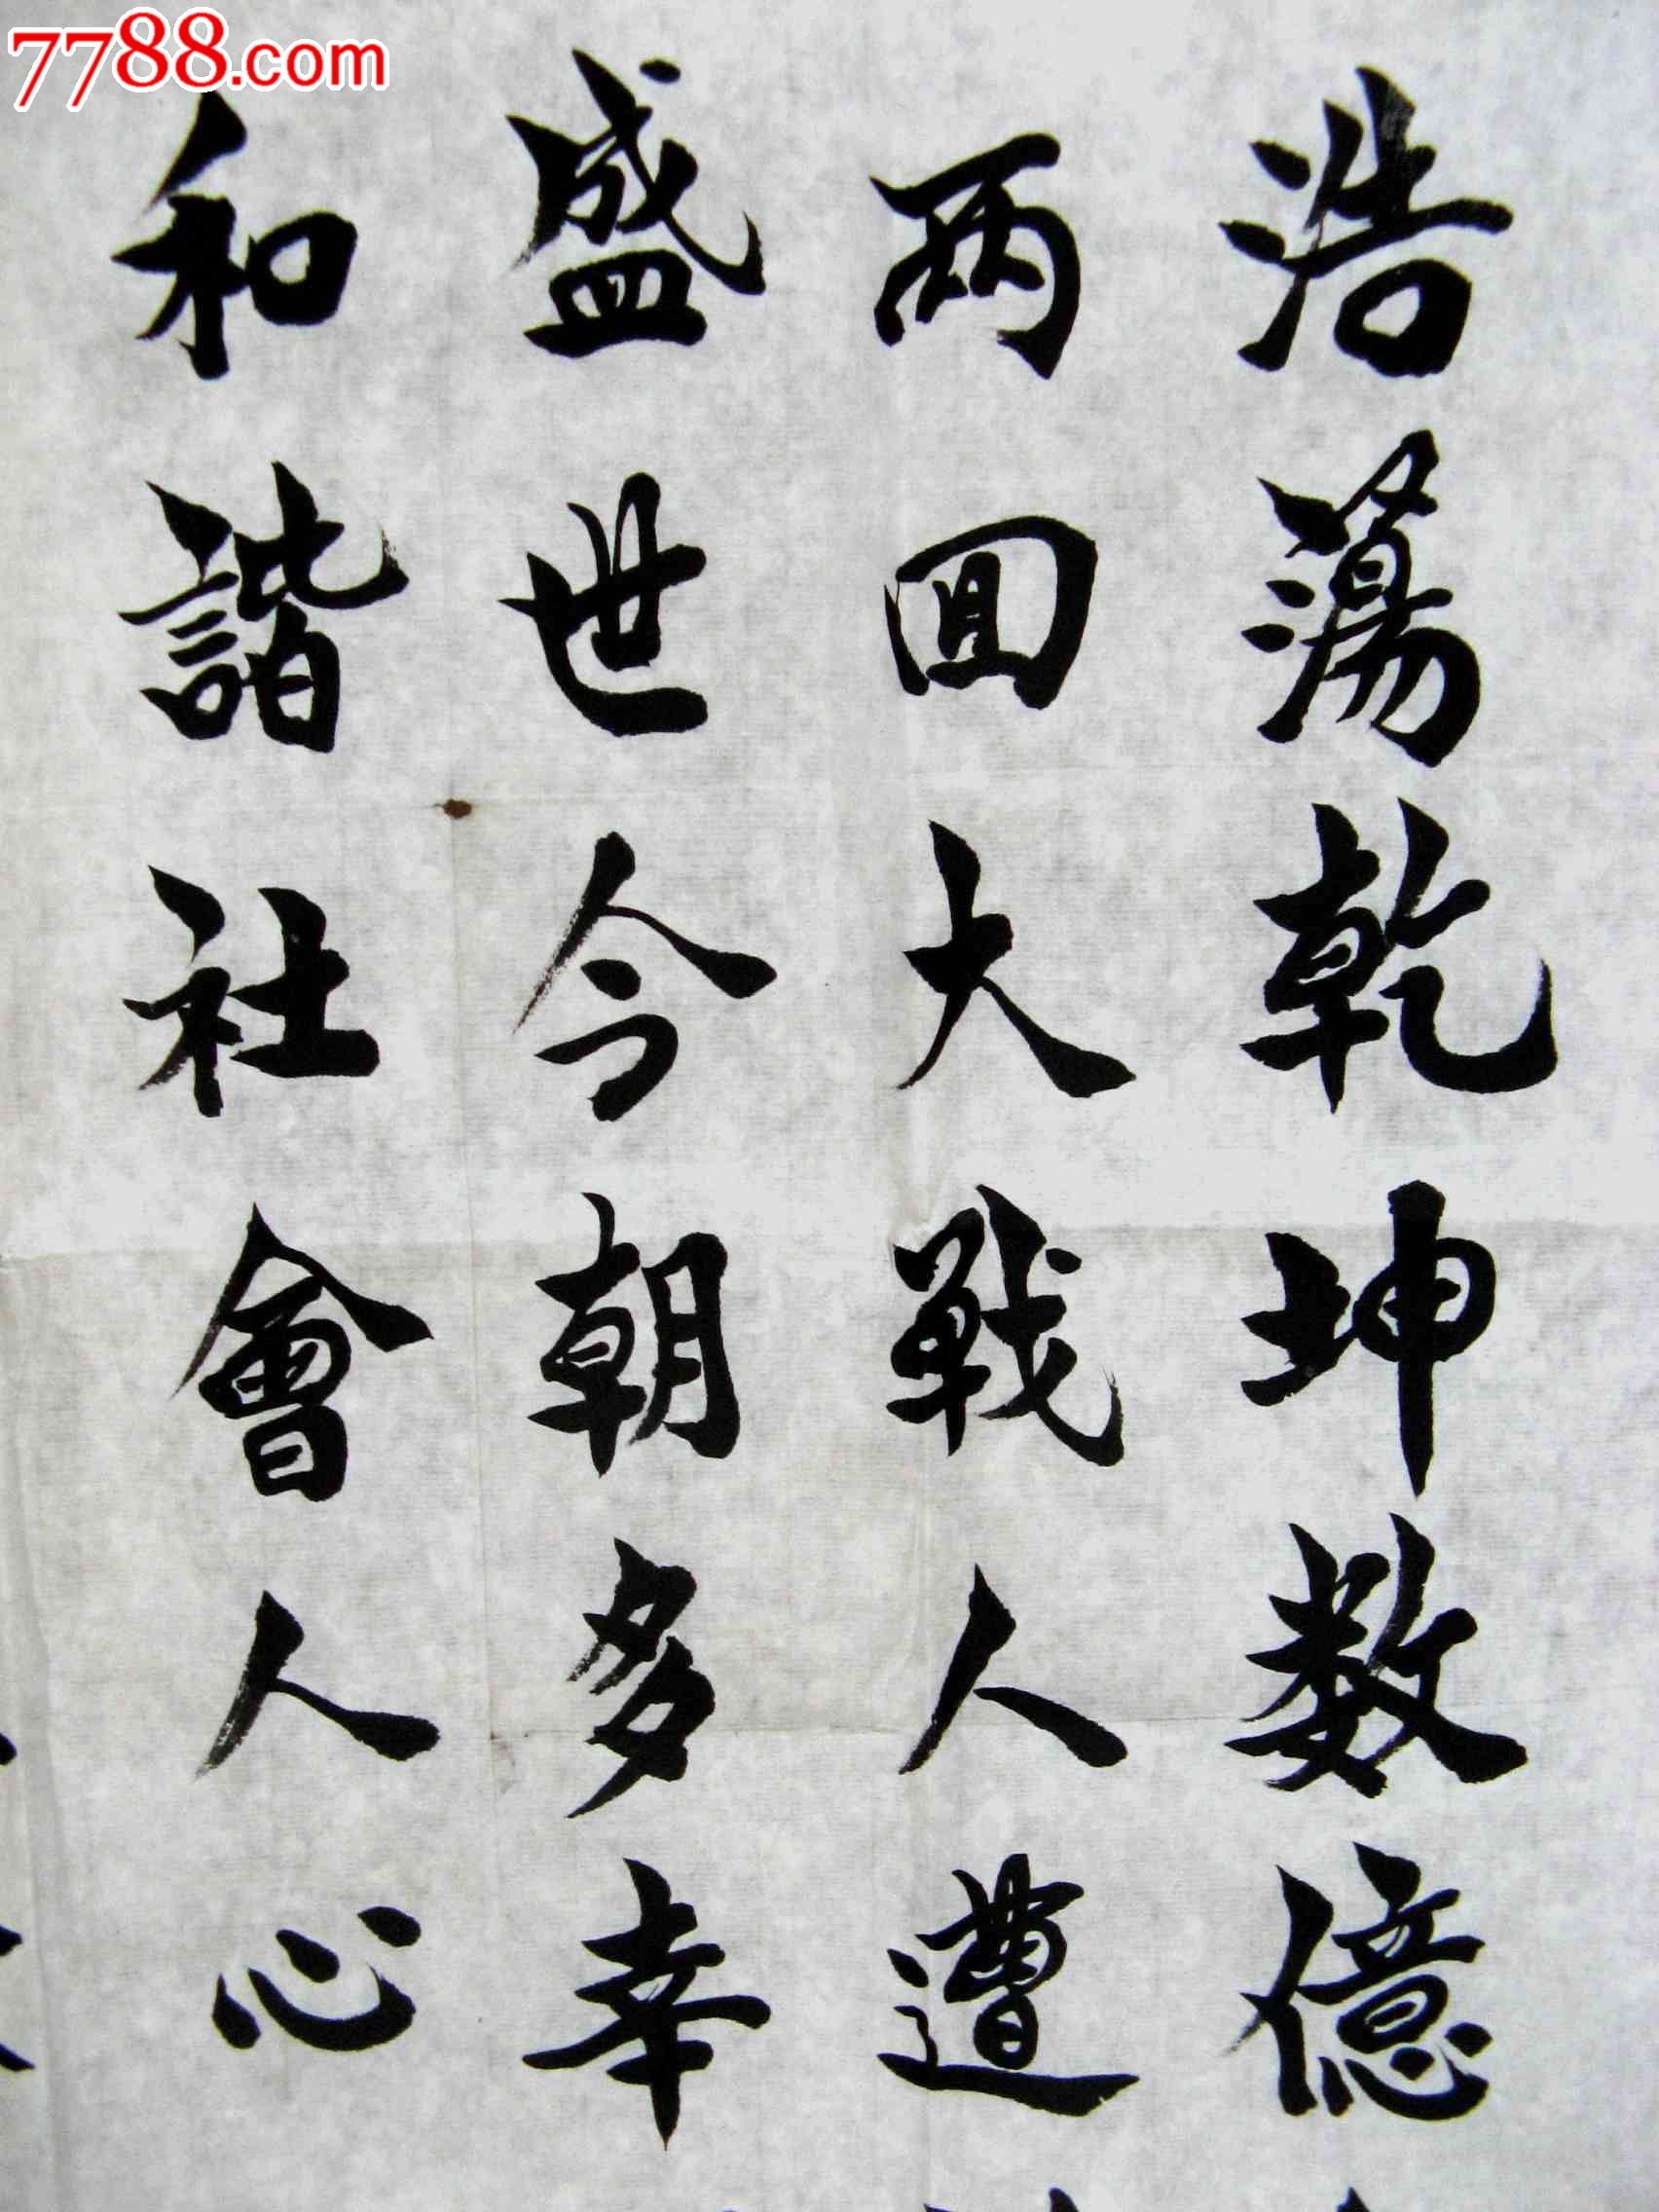 7788.com
浩蕩乾坤数億
两囬大戰人遭
盛世今朝多幸
和諧社會人心